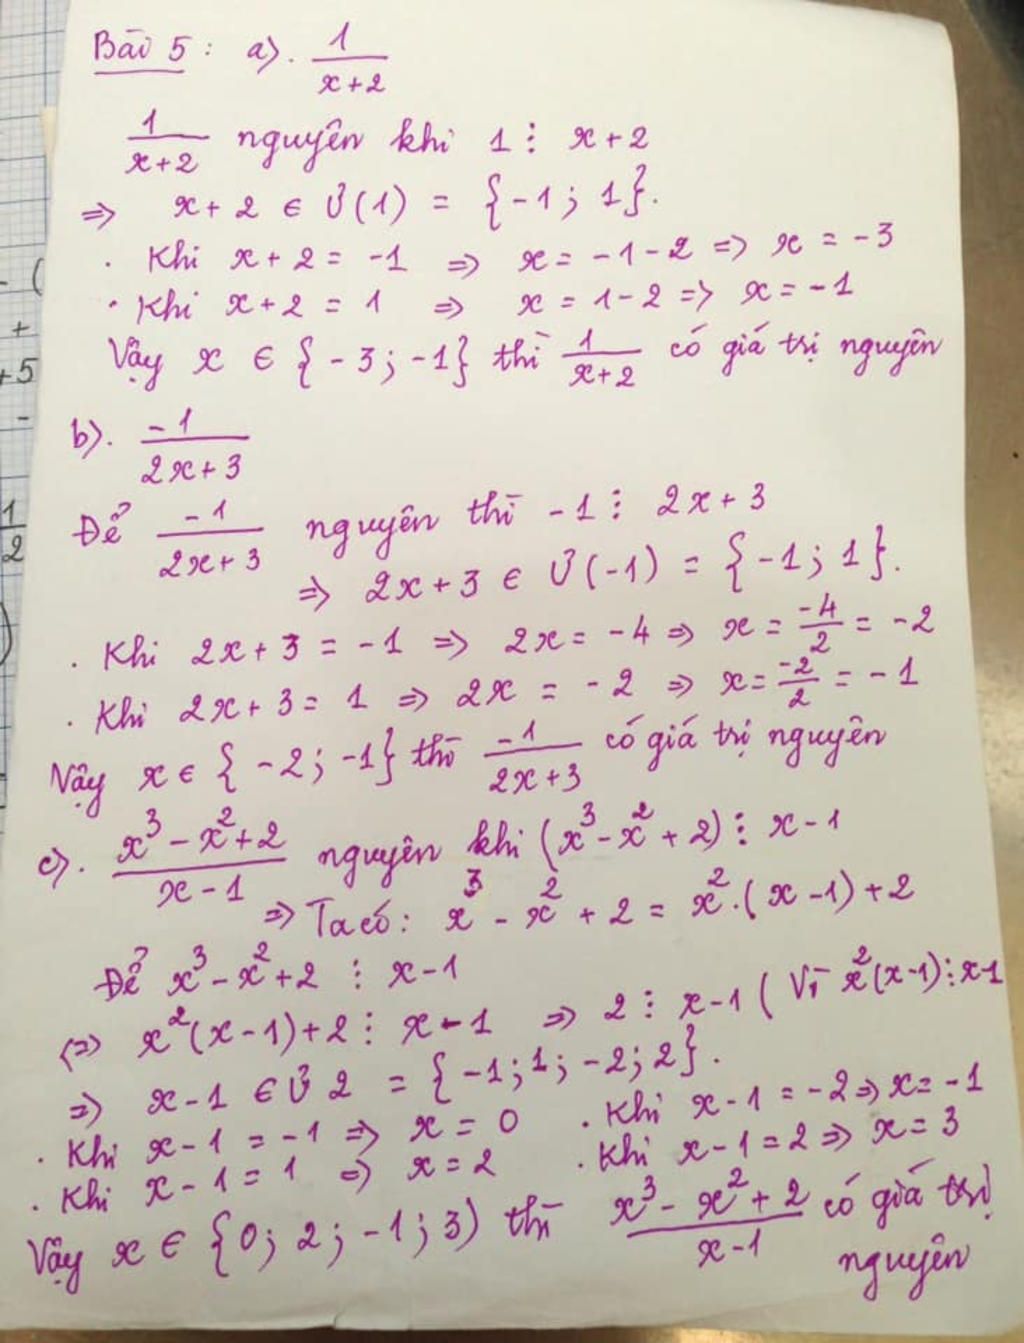 Bài 5 : a). 1/(x+2)
1/(x+2) nguyên khi 1 ⋮ x+2
=> x+2 ∈ Ư(1) = {-1; 1}.
· Khi x+2 = -1 => x = -1-2 => x = -3
· Khi x+2 = 1 => x = 1-2 => x = -1
Vậy x ∈ {-3; -1} thì 1/(x+2) có giá trị nguyên
b). -1/(2x+3)
Để -1/(2x+3) nguyên thì -1 ⋮ 2x+3
=> 2x+3 ∈ Ư(-1) = {-1; 1}.
· Khi 2x+3 = -1 => 2x = -4 => x = -4/2 = -2
· Khi 2x+3 = 1 => 2x = -2 => x = -2/2 = -1
Vậy x ∈ {-2; -1} thì -1/(2x+3) có giá trị nguyên
c). (x³-x²+2)/(x-1) nguyên khi (x³-x²+2) ⋮ x-1
=> Ta có: x³ - x² + 2 = x².(x-1)+2
Để x³-x²+2 ⋮ x-1
<=> x²(x-1)+2 ⋮ x-1 => 2 ⋮ x-1 (Vì x²(x-1) ⋮ x-1
=> x-1 ∈ Ư 2 = {-1; 1; -2; 2}.
· Khi x-1 = -1 => x = 0 · Khi x-1 = -2 => x = -1
· Khi x-1 = 1 => x = 2 · Khi x-1 = 2 => x = 3
Vậy x ∈ {0; 2; -1; 3) thì (x³-x²+2)/(x-1) có giá trị
nguyên
- (
+
+5
-
1/2
)